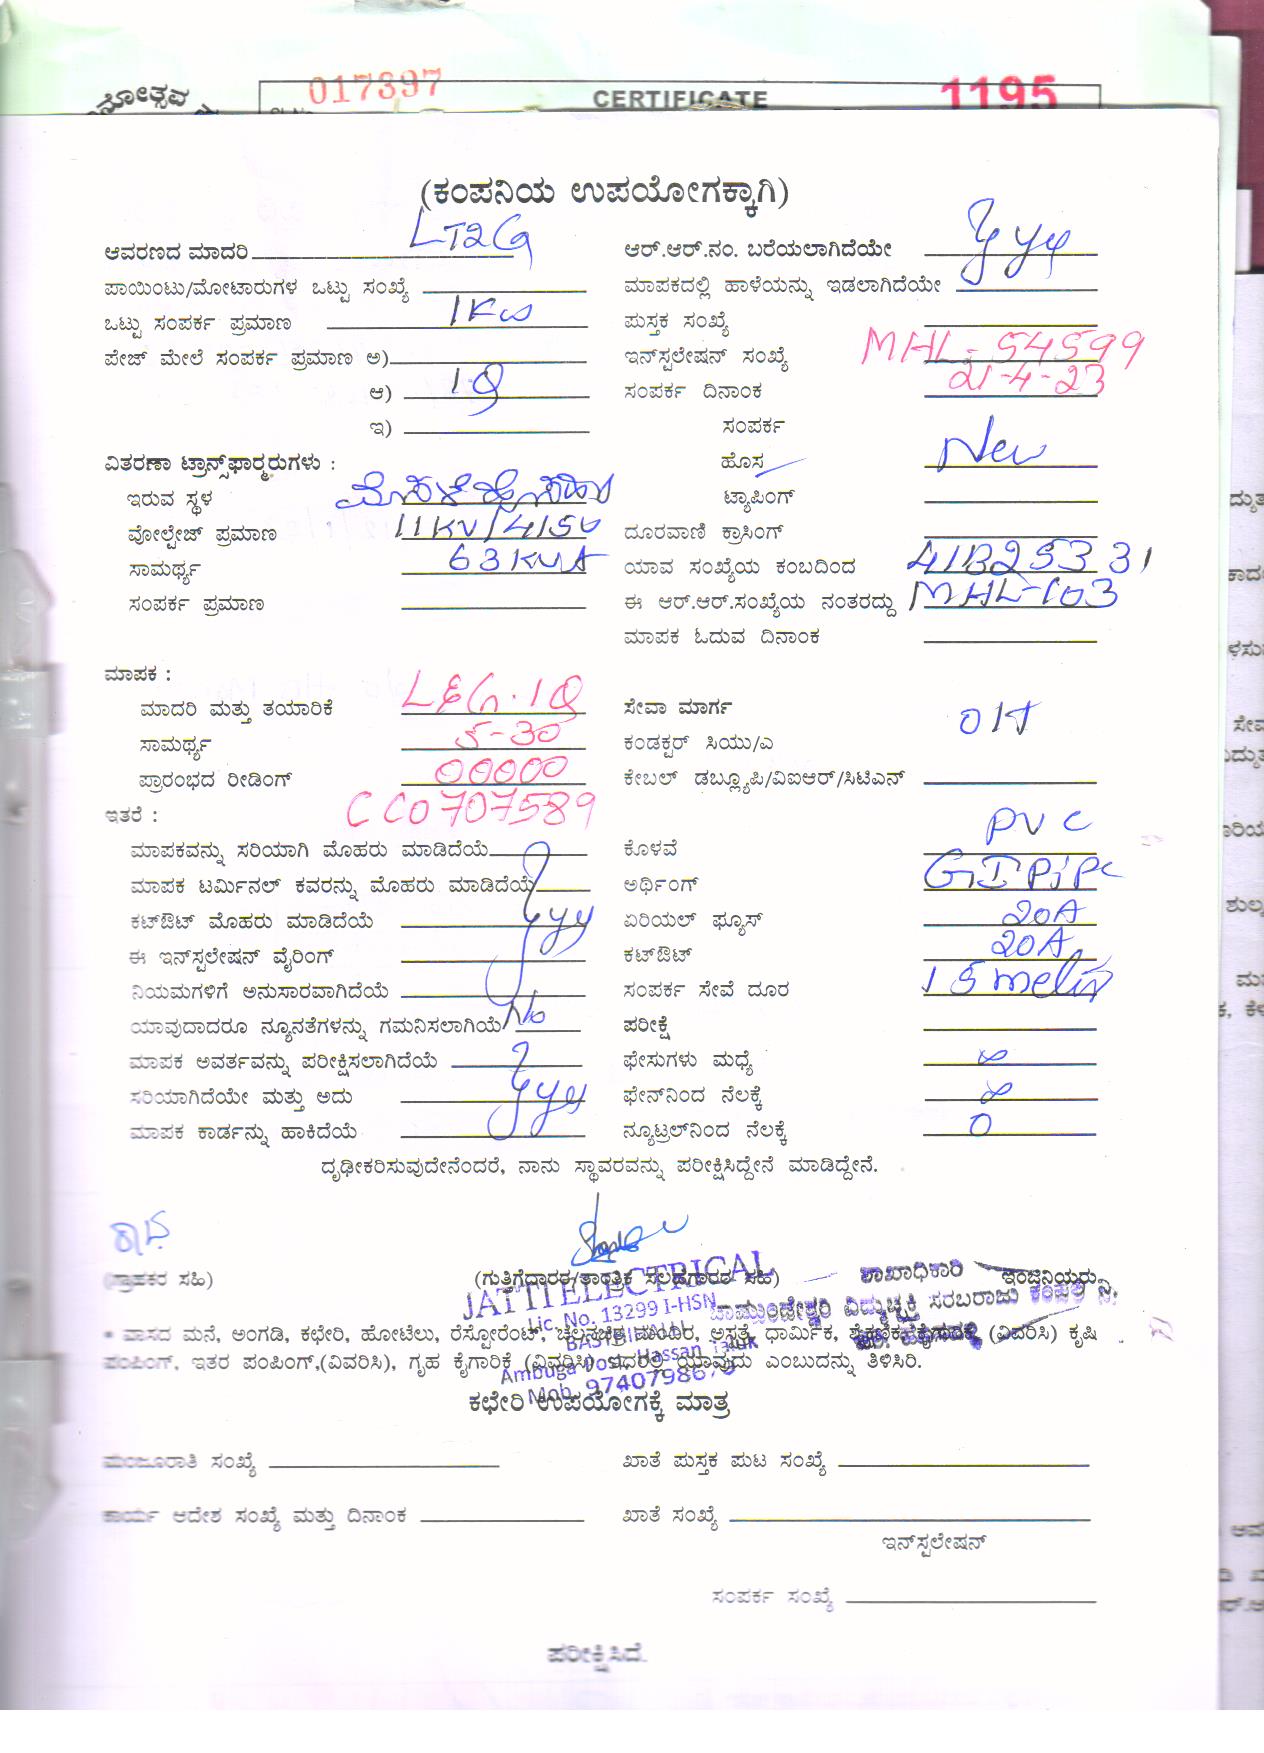 017397
CERTIFICATE
1195
(ಕಂಪನಿಯ ಉಪಯೋಗಕ್ಕಾಗಿ)
ಆವರಣದ ಮಾದರಿ LT2G ಆರ್.ಆರ್.ನಂ. ಬರೆಯಲಾಗಿದೆಯೇ
ಪಾಯಿಂಟು/ಮೋಟಾರುಗಳ ಒಟ್ಟು ಸಂಖ್ಯೆ ಮಾಪಕದಲ್ಲಿ ಹಾಳೆಯನ್ನು ಇಡಲಾಗಿದೆಯೇ
ಒಟ್ಟು ಸಂಪರ್ಕ ಪ್ರಮಾಣ 1Kw ಪುಸ್ತಕ ಸಂಖ್ಯೆ
ಪೇಜ್ ಮೇಲೆ ಸಂಪರ್ಕ ಪ್ರಮಾಣ ಅ) ಇನ್‌ಸ್ಟಲೇಷನ್ ಸಂಖ್ಯೆ MHL-54599
ಆ) ಸಂಪರ್ಕ ದಿನಾಂಕ 21-4-23
ಇ) ಸಂಪರ್ಕ
ವಿತರಣಾ ಟ್ರಾನ್ಸ್‌ಫಾರ್ಮರುಗಳು : ಹೊಸ New
ಇರುವ ಸ್ಥಳ ಟ್ಯಾಪಿಂಗ್
ವೋಲ್ಟೇಜ್ ಪ್ರಮಾಣ 11KV/415V ದೂರವಾಣಿ ಕ್ರಾಸಿಂಗ್
ಸಾಮರ್ಥ್ಯ 63KVA ಯಾವ ಸಂಖ್ಯೆಯ ಕಂಬದಿಂದ 41B25331
ಸಂಪರ್ಕ ಪ್ರಮಾಣ ಈ ಆರ್.ಆರ್.ಸಂಖ್ಯೆಯ ನಂತರದ್ದು MHL-103
ಮಾಪಕ ಓದುವ ದಿನಾಂಕ
ಮಾಪಕ :
ಮಾದರಿ ಮತ್ತು ತಯಾರಿಕೆ ಸೇವಾ ಮಾರ್ಗ
ಸಾಮರ್ಥ್ಯ 5-30 ಕಂಡಕ್ಟರ್ ಸಿಯು/ಎ
ಪ್ರಾರಂಭದ ರೀಡಿಂಗ್ 00000 ಕೇಬಲ್ ಡಬ್ಲ್ಯೂಪಿ/ವಿಐಆರ್/ಸಿಟಿಎಸ್
ಇತರೆ : CC0707589
ಮಾಪಕವನ್ನು ಸರಿಯಾಗಿ ಮೊಹರು ಮಾಡಿದೆಯೆ ಕೊಳವೆ PVC
ಮಾಪಕ ಟರ್ಮಿನಲ್ ಕವರನ್ನು ಮೊಹರು ಮಾಡಿದೆಯೆ ಅರ್ಥಿಂಗ್ GI Pipe
ಕಟ್‌ಔಟ್ ಮೊಹರು ಮಾಡಿದೆಯೆ ಏರಿಯಲ್ ಫ್ಯೂಸ್ 20A
ಈ ಇನ್‌ಸ್ಟಲೇಷನ್ ವೈರಿಂಗ್ ಕಟ್‌ಔಟ್ 20A
ನಿಯಮಗಳಿಗೆ ಅನುಸಾರವಾಗಿದೆಯೆ ಸಂಪರ್ಕ ಸೇವೆ ದೂರ 15
ಯಾವುದಾದರೂ ನ್ಯೂನತೆಗಳನ್ನು ಗಮನಿಸಲಾಗಿಯೆ No ಪರೀಕ್ಷೆ
ಮಾಪಕ ಅವರ್ತವನ್ನು ಪರೀಕ್ಷಿಸಲಾಗಿದೆಯೆ ಫೇಸುಗಳು ಮಧ್ಯೆ ∞
ಸರಿಯಾಗಿದೆಯೇ ಮತ್ತು ಅದು ಫೇನ್‌ನಿಂದ ನೆಲಕ್ಕೆ ∞
ಮಾಪಕ ಕಾರ್ಡನ್ನು ಹಾಕಿದೆಯೆ ನ್ಯೂಟ್ರಲ್‌ನಿಂದ ನೆಲಕ್ಕೆ 0
ದೃಢೀಕರಿಸುವುದೇನೆಂದರೆ, ನಾನು ಸ್ಥಾವರವನ್ನು ಪರೀಕ್ಷಿಸಿದ್ದೇನೆ ಮಾಡಿದ್ದೇನೆ.
(ಗ್ರಾಹಕರ ಸಹಿ) (ಗುತ್ತಿಗೆದಾರರ/ತಾಂತ್ರಿಕ ಸಲಹೆಗಾರರ ಸಹಿ) ಶಾಖಾಧಿಕಾರಿ ಇಂಜಿನಿಯರು
JATTI ELECTRICAL
Lic. No. 13299 I-HSN
ಚಾಮುಂಡೇಶ್ವರಿ ವಿದ್ಯುಚ್ಛಕ್ತಿ ಸರಬರಾಜು ಕಂಪನಿ ನಿ.
* ವಾಸದ ಮನೆ, ಅಂಗಡಿ, ಕಛೇರಿ, ಹೋಟೆಲು, ರೆಸ್ಟೋರೆಂಟ್, ಚಲನಚಿತ್ರ ಮಂದಿರ, ಆಸ್ಪತ್ರೆ, ಧಾರ್ಮಿಕ, ಶೈಕ್ಷಣಿಕ, ಕೈಗಾರಿಕೆ (ವಿವರಿಸಿ) ಕೃಷಿ
ಪಂಪಿಂಗ್, ಇತರ ಪಂಪಿಂಗ್,(ವಿವರಿಸಿ), ಗೃಹ ಕೈಗಾರಿಕೆ (ವಿವರಿಸಿ) ಇದರಲ್ಲಿ ಯಾವುದು ಎಂಬುದನ್ನು ತಿಳಿಸಿರಿ.
Ambuga Post, Hassan Taluk
Mob.
ಕಛೇರಿ ಉಪಯೋಗಕ್ಕೆ ಮಾತ್ರ
ಮಂಜೂರಾತಿ ಸಂಖ್ಯೆ ಖಾತೆ ಪುಸ್ತಕ ಪುಟ ಸಂಖ್ಯೆ
ಕಾರ್ಯ ಆದೇಶ ಸಂಖ್ಯೆ ಮತ್ತು ದಿನಾಂಕ ಖಾತೆ ಸಂಖ್ಯೆ
ಇನ್‌ಸ್ಟಲೇಷನ್
ಸಂಪರ್ಕ ಸಂಖ್ಯೆ
ಪರೀಕ್ಷಿಸಿದೆ.